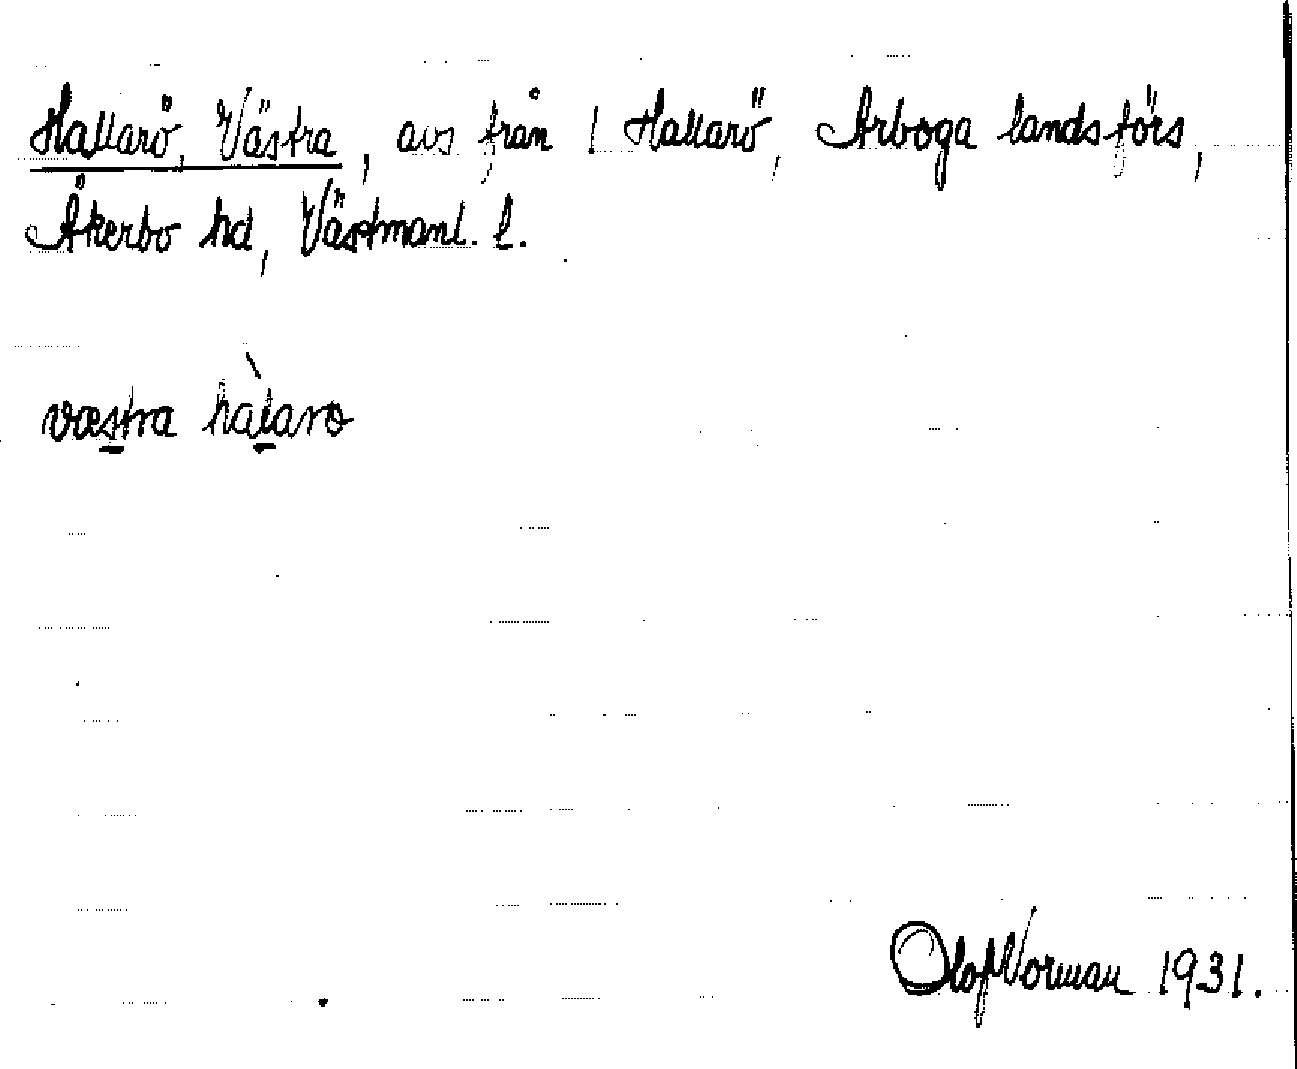 Hallarö, Västra, avs från 1 Hallarö, Arboga landsförs,
Åkerbo hd, Västmanl. l.
væstra hàlarο
Olof Norman 1931.